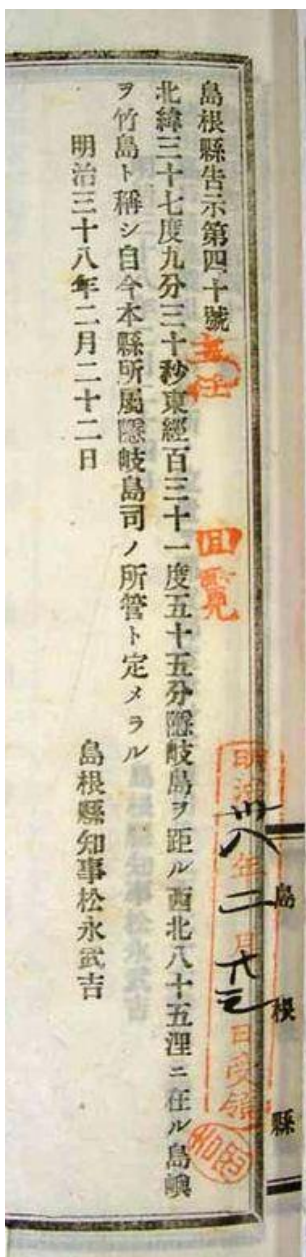 島根縣告示第四十號
北緯三十七度九分三十秒東經百三十一度五十五分隱岐島ヲ距ル西北八十五浬ニ在ル島嶼
ヲ竹島ト稱シ自今本縣所屬隱岐島司ノ所管ト定メラル
明治三十八年二月二十二日
島根縣知事松永武吉
主任
回覽
島根縣